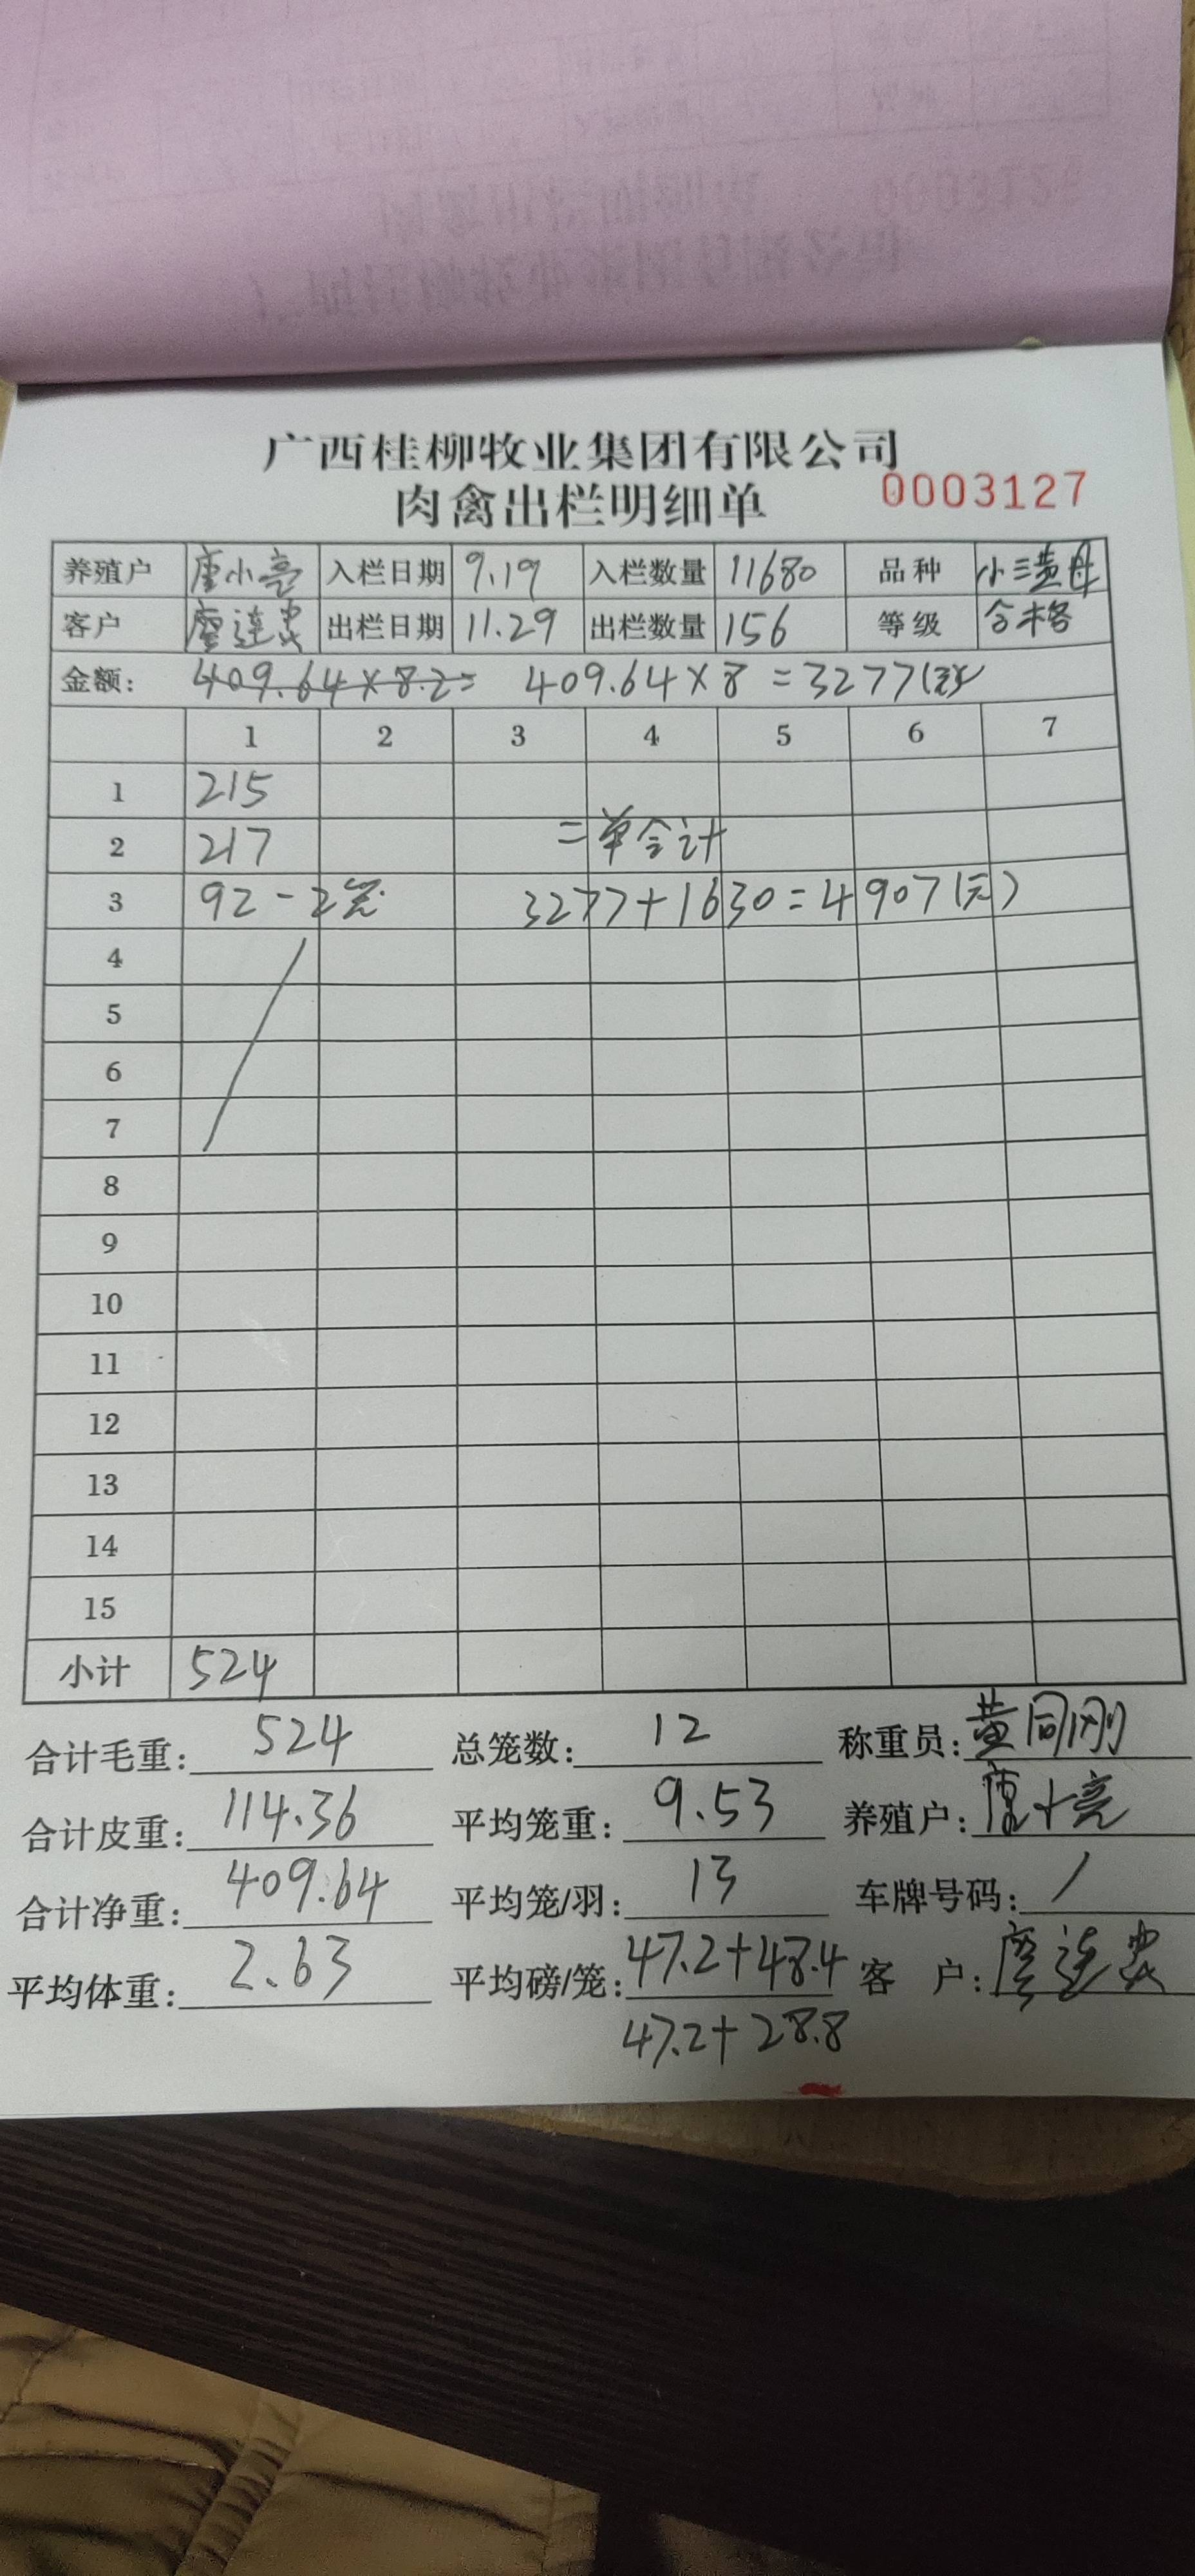 广西桂柳牧业集团有限公司
肉禽出栏明细单 0003127
养殖户 唐小亮 入栏日期 9.19 入栏数量 11680 品种 小三黄母
客户 廖连 出栏日期 11.29 出栏数量 156 等级 合格
金额: 409.64×8.2= 409.64×8=3277(元)
1 2 3 4 5 6 7
1 215
2 217 二单合计
3 92-2笼 3277+1630=4907(元)
4
5
6
7
8
9
10
11
12
13
14
15
小计 524
合计毛重: 524 总笼数: 12 称重员: 黄同刚
合计皮重: 114.36 平均笼重: 9.53 养殖户: 唐小亮
合计净重: 409.64 平均笼/羽: 13 车牌号码: /
平均体重: 2.63 平均磅/笼: 47.2+48.4 客 户: 廖连
47.2+28.8